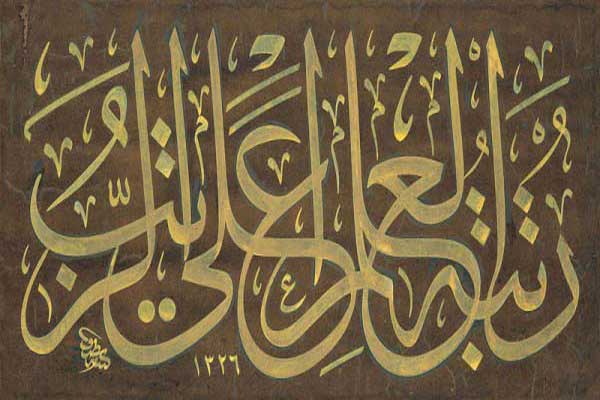 رتبة العلم أعلى الرتب
١٣٢٦